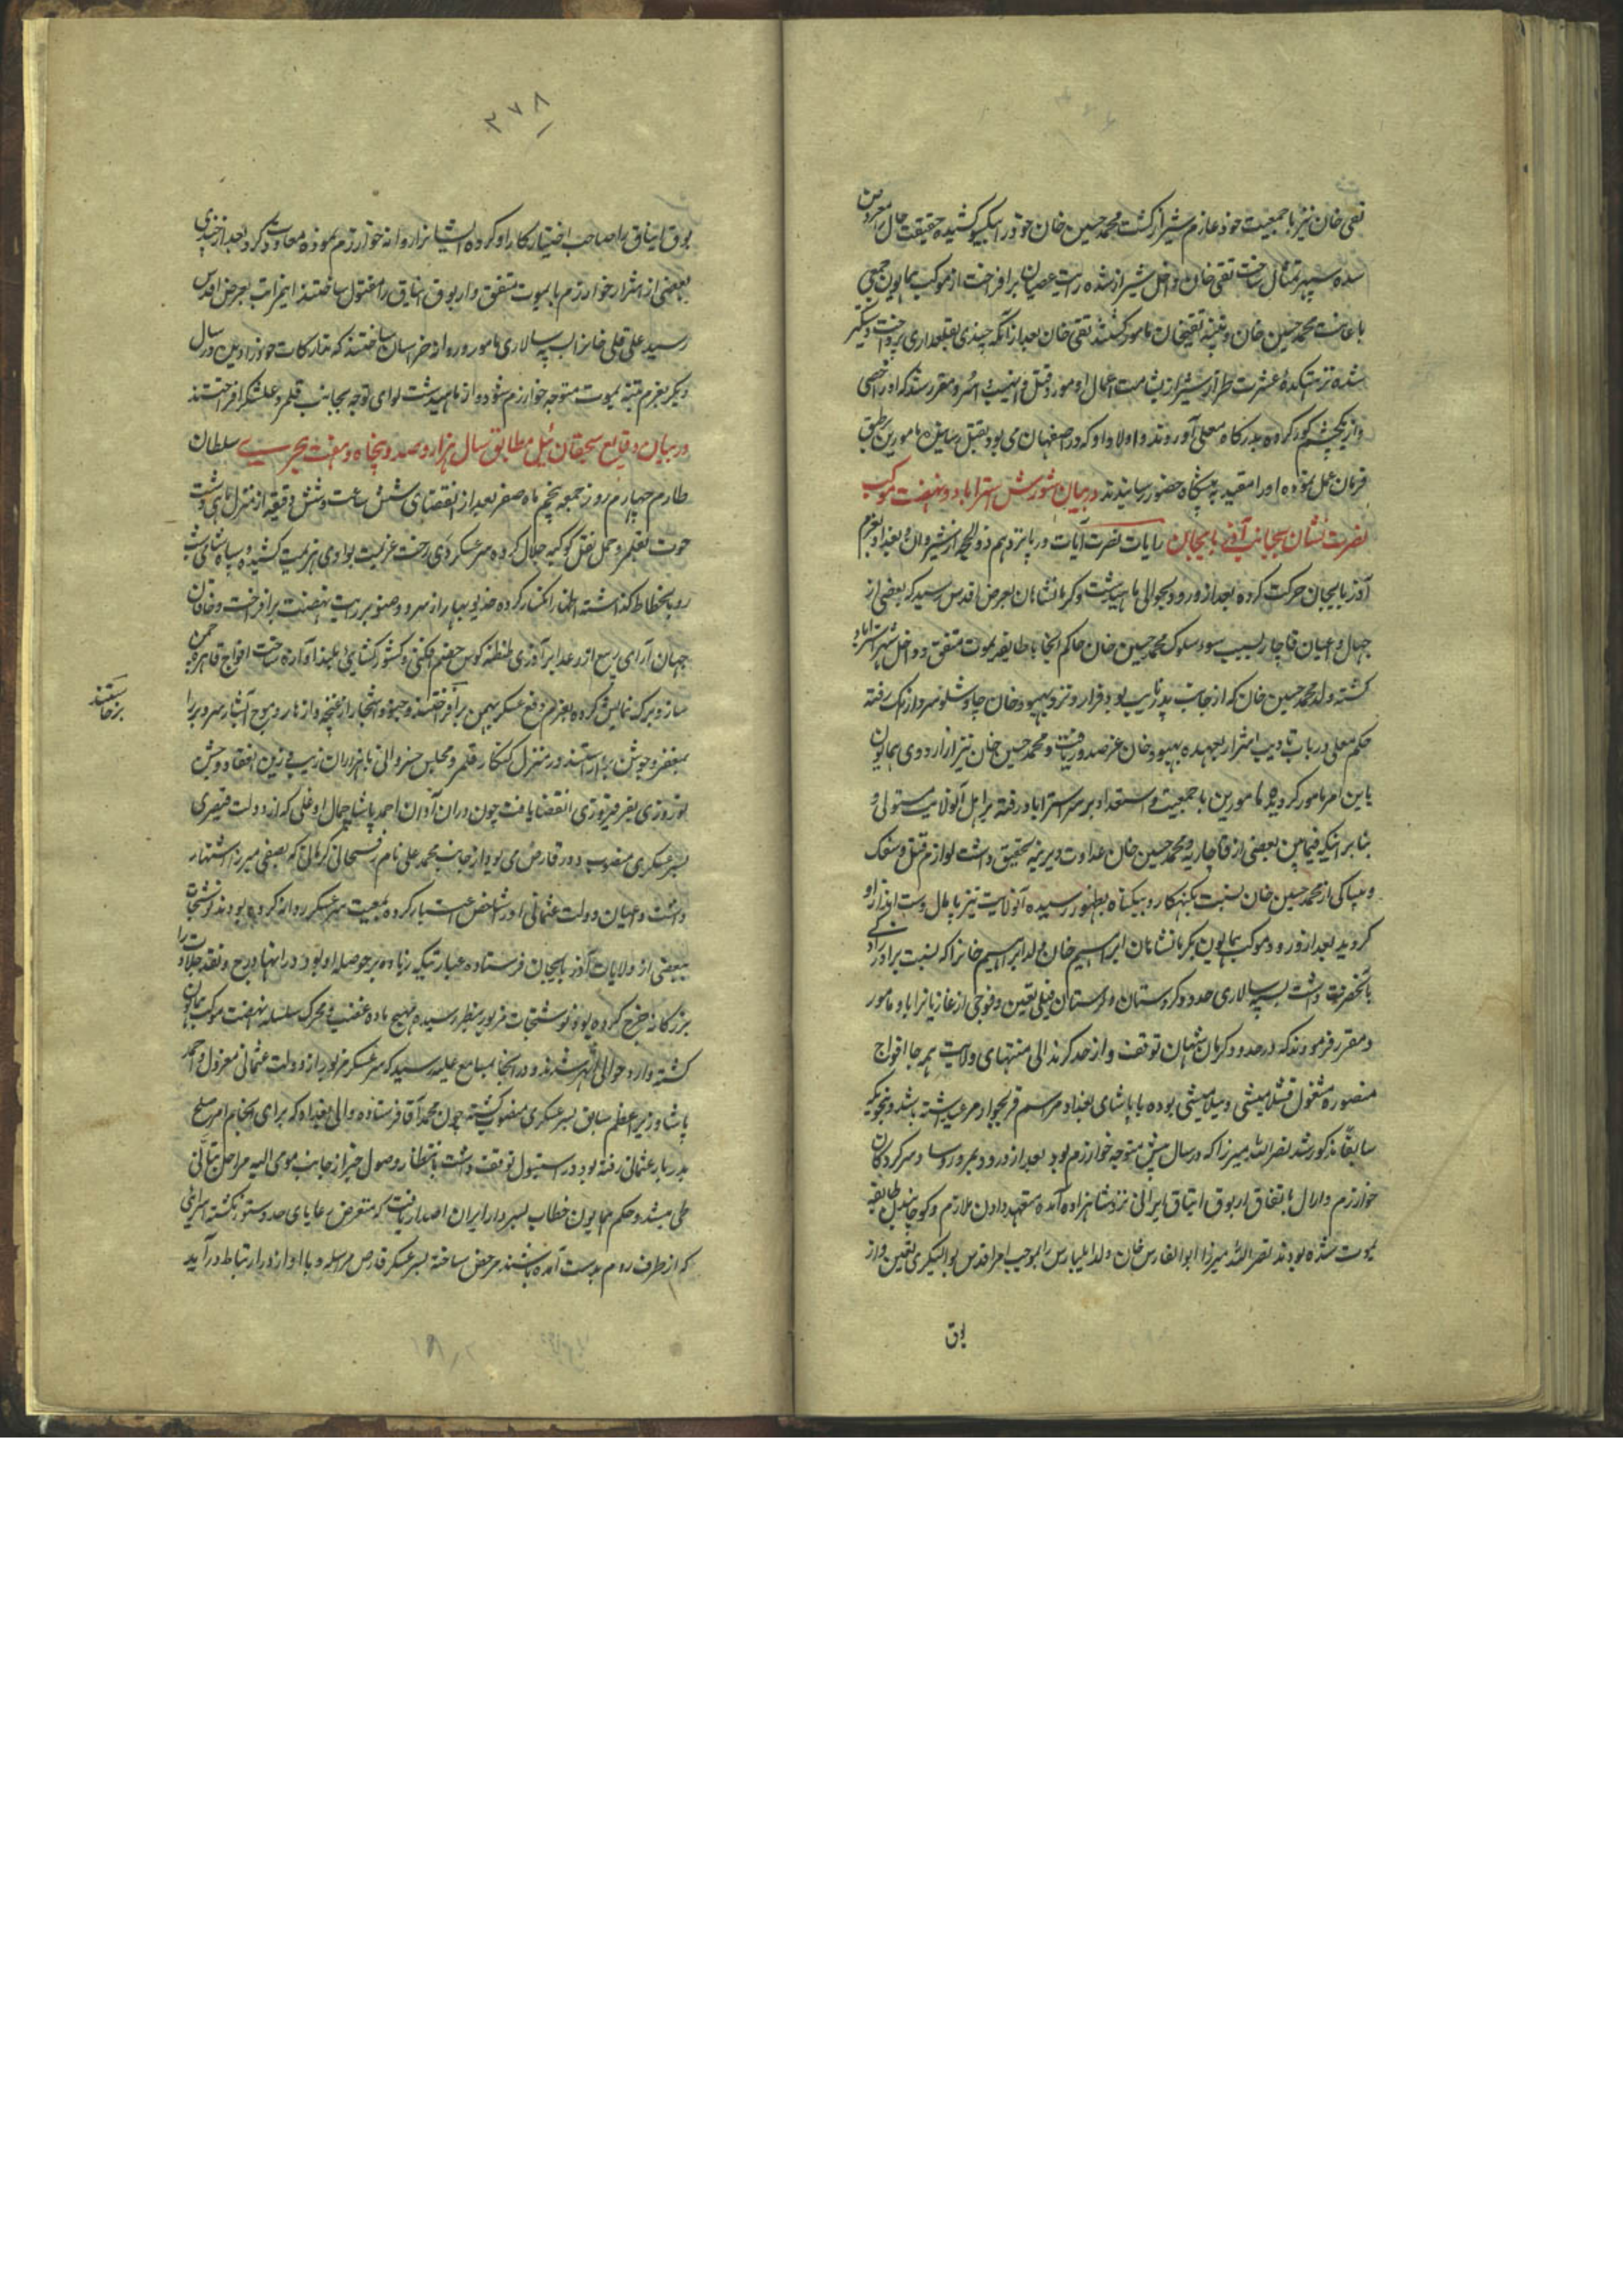 تقی خان نیز با جمعیت خود عازم شیراز گشت محمد حسین خان خود را بیکسو کشیده حقیقت حال معروض
سده سپهر تمثال ساخت تقی خان داخل شیراز شده رایت عصیان برافراخت از موکب همایون جمعی
باعانت محمد حسین خان و تنبیه تقیخان مامور گشتند تقی خان بعد از آنکه چندی بقلعداری پرداخت دستگیر
شده نزهتکدهٔ عشرت طراز شیراز بشامت اعمال او مورد قتل و نهب و اسر و مقرر شد که او را خصی
و از یکچشم کور کرده بدرگاه معلی آوردند و اولاد او که در اصفهان می بود بقتل رسانند مامورین بر طبق
فرمان عمل نموده او را مقید به پیشگاه حضور رسانیدند در بیان شورش استراباد و نهضت موکب
نصرت نشان بجانب آذربایجان رایات نصرت آیات در پانزدهم ذوالحجه از شهروان بغداد بعزم
آذربایجان حرکت کرده بعد از ورود بحوالی ماهیدشت و کرمانشاهان بعرض اقدس رسید که بعضی از
جهال و اعیان قاجار بسبب سوء سلوک محمد حسین خان حاکم انجا با طایفه یموت متفق و داخل شهر استراباد
گشته ولد محمد حسین خان که از جانب پدر نایب بود فرار و نزد بهبود خان چاوشلو سردار اتک رفته
حکم معلی در باب تادیب اشرار بعهده بهبود خان عز صدور یافت و محمد حسین خان نیز از اردوی همایون
باین امر مامور گردید مامورین با جمعیت و استعداد بر سر استراباد رفته بر اهل آنولایت مستولی و
بنابر اینکه فیمابین بعضی از قاجاریه و محمد حسین خان عداوت دیرینه تحقیق داشت لوازم قتل و سفک
و بیباکی از محمد حسین خان نسبت بگنهکار و بیگناه بظهور رسیده آنولایت نیز پامال دست انداز او
گردید بعد از ورود موکب همایون بکرمانشاهان ابراهیم خان ولد ابراهیم خانرا که نسبت برادرزادگی
بآنحضرت داشت بسپه سالاری حدود کردستان و لرستان فیلی تعیین و فوجی از غازیانرا با او مامور
و مقرر فرمودند که در حدود کرمانشاهان توقف و از حد کرند الی منتهای ولایت همه جا افواج
منصوره مشغول قشلامیشی و ییلامیشی بوده با پاشای بغداد مراسم قربجوار مرعی داشته باشد و بنحویکه
سابقاً مذکور شد نصر الله میرزا که در سال پیش متوجه خوارزم بود بعد از ورود بمرو روسا و سرکردگان
خوارزم و ارال باتفاق ارتوق ایناق نزد شاهزاده آمده متعهد دادن ملازم و کوچانیدن طایفه
یموت شده بودند نصر الله میرزا ابوالفارس خان ولد ایلبارس را بموجب امر اقدس بوالیگری تعیین و از
بوق
۲۷۸
بوق ایناق را صاحب اختیار کار او کرده ایشانرا روانه خوارزم نموده معاودت کرد بعد از چندی
بعضی از اشرار خوارزم با یموت متفق و ارتوق ایناق را مقتول ساختند اینمراتب بعرض اقدس
رسید علی قلی خانرا بسپه سالاری مامور و روانه خراسان ساختند که تدارکات خود را دیده در سال
دیگر بعزم تنبیه یموت متوجه خوارزم شود و از ماهیدشت لوای توجه بجانب قلمرو علیشکر افراختند
در بیان وقایع سیچقان ئیل مطابق سال هزار و صد و پنجاه و هفت هجری سلطان
طارم چهارم روز جمعه پنجم ماه صفر بعد از انقضای شش ساعت و شش دقیقه از منزل ماهی دشت
حوت بقلمرو حمل نقل کوکبه جلال کرده سرعسکر دی رخت عزیمت بوادی هزیمت کشید و پاشای شتا
رو بانحطاط گذاشته اظهار انکسار کرده خدیو بهار از سرو و صنوبر رایت نهضت برافراخت و خاقان
جهان آرای ربیع از رعد ابر آذری طنطنه کوس خصم افکنی و کشورگشایی بلند آوازه ساخت افواج قاهره چمن
ساز و برگ نمایش کرده بعزم دفع عسکر بهمن برآفراختند و جنود اشجار از غنچه و ازهار و موج آبشار سر و بر را
بمغفر و جوشن برآراستند در منزل کنگاور قلمرو مجلس خسروانی با هزاران زیب و زین انعقاد و جشن
نوروزی بفر فیروزی انقضا یافت چون دران آوان احمد پاشا جمال اوغلی که از دولت قیصری
بسرعسکری منصوب و در قارص می بود از جانب محمد علی نام رفسنجانی کرمانی که بصفی میرزا اشتهار
داشت و اعیان دولت عثمانی او را شاخص اعتبار کرده بمعیت سرعسکر روانه کرده بودند نوشتجات
ببعضی از ولایات آذربایجان فرستاده عبارتیکه زیاده بر حوصله او بود در انها درج و نقد جلادت را
بزرگانه خرج کرده بود نوشتجات مزبور بنظر رسیده مهیج ماده غضب و محرک سلسله نهضت موکب همایون
گشته وارد حوالی ابهر شدند و در انجا بمسامع علیه رسید که سرعسکر مزبور از دولت عثمانی معزول و احمد
پاشا وزیر اعظم سابق بسرعسکری منصوب گشته چون محمد آقا فرستاده والی بغداد که برای انجام امر صلح
بدربار عثمانی رفته بود در استنبول توقف داشت بانتظار وصول خبر از جانب مومی الیه مراحل بتأنی
طی میشد و حکم همایون خطاب بسردار ایران اصدار یافت که متعرض رعایای حدود ستور نگشته اسرائی
که از طرف روم بدست آمده باشند مرخص ساخته بسرعسکر قارص مراسله و با او از در ارتباط درآید
برخاستند